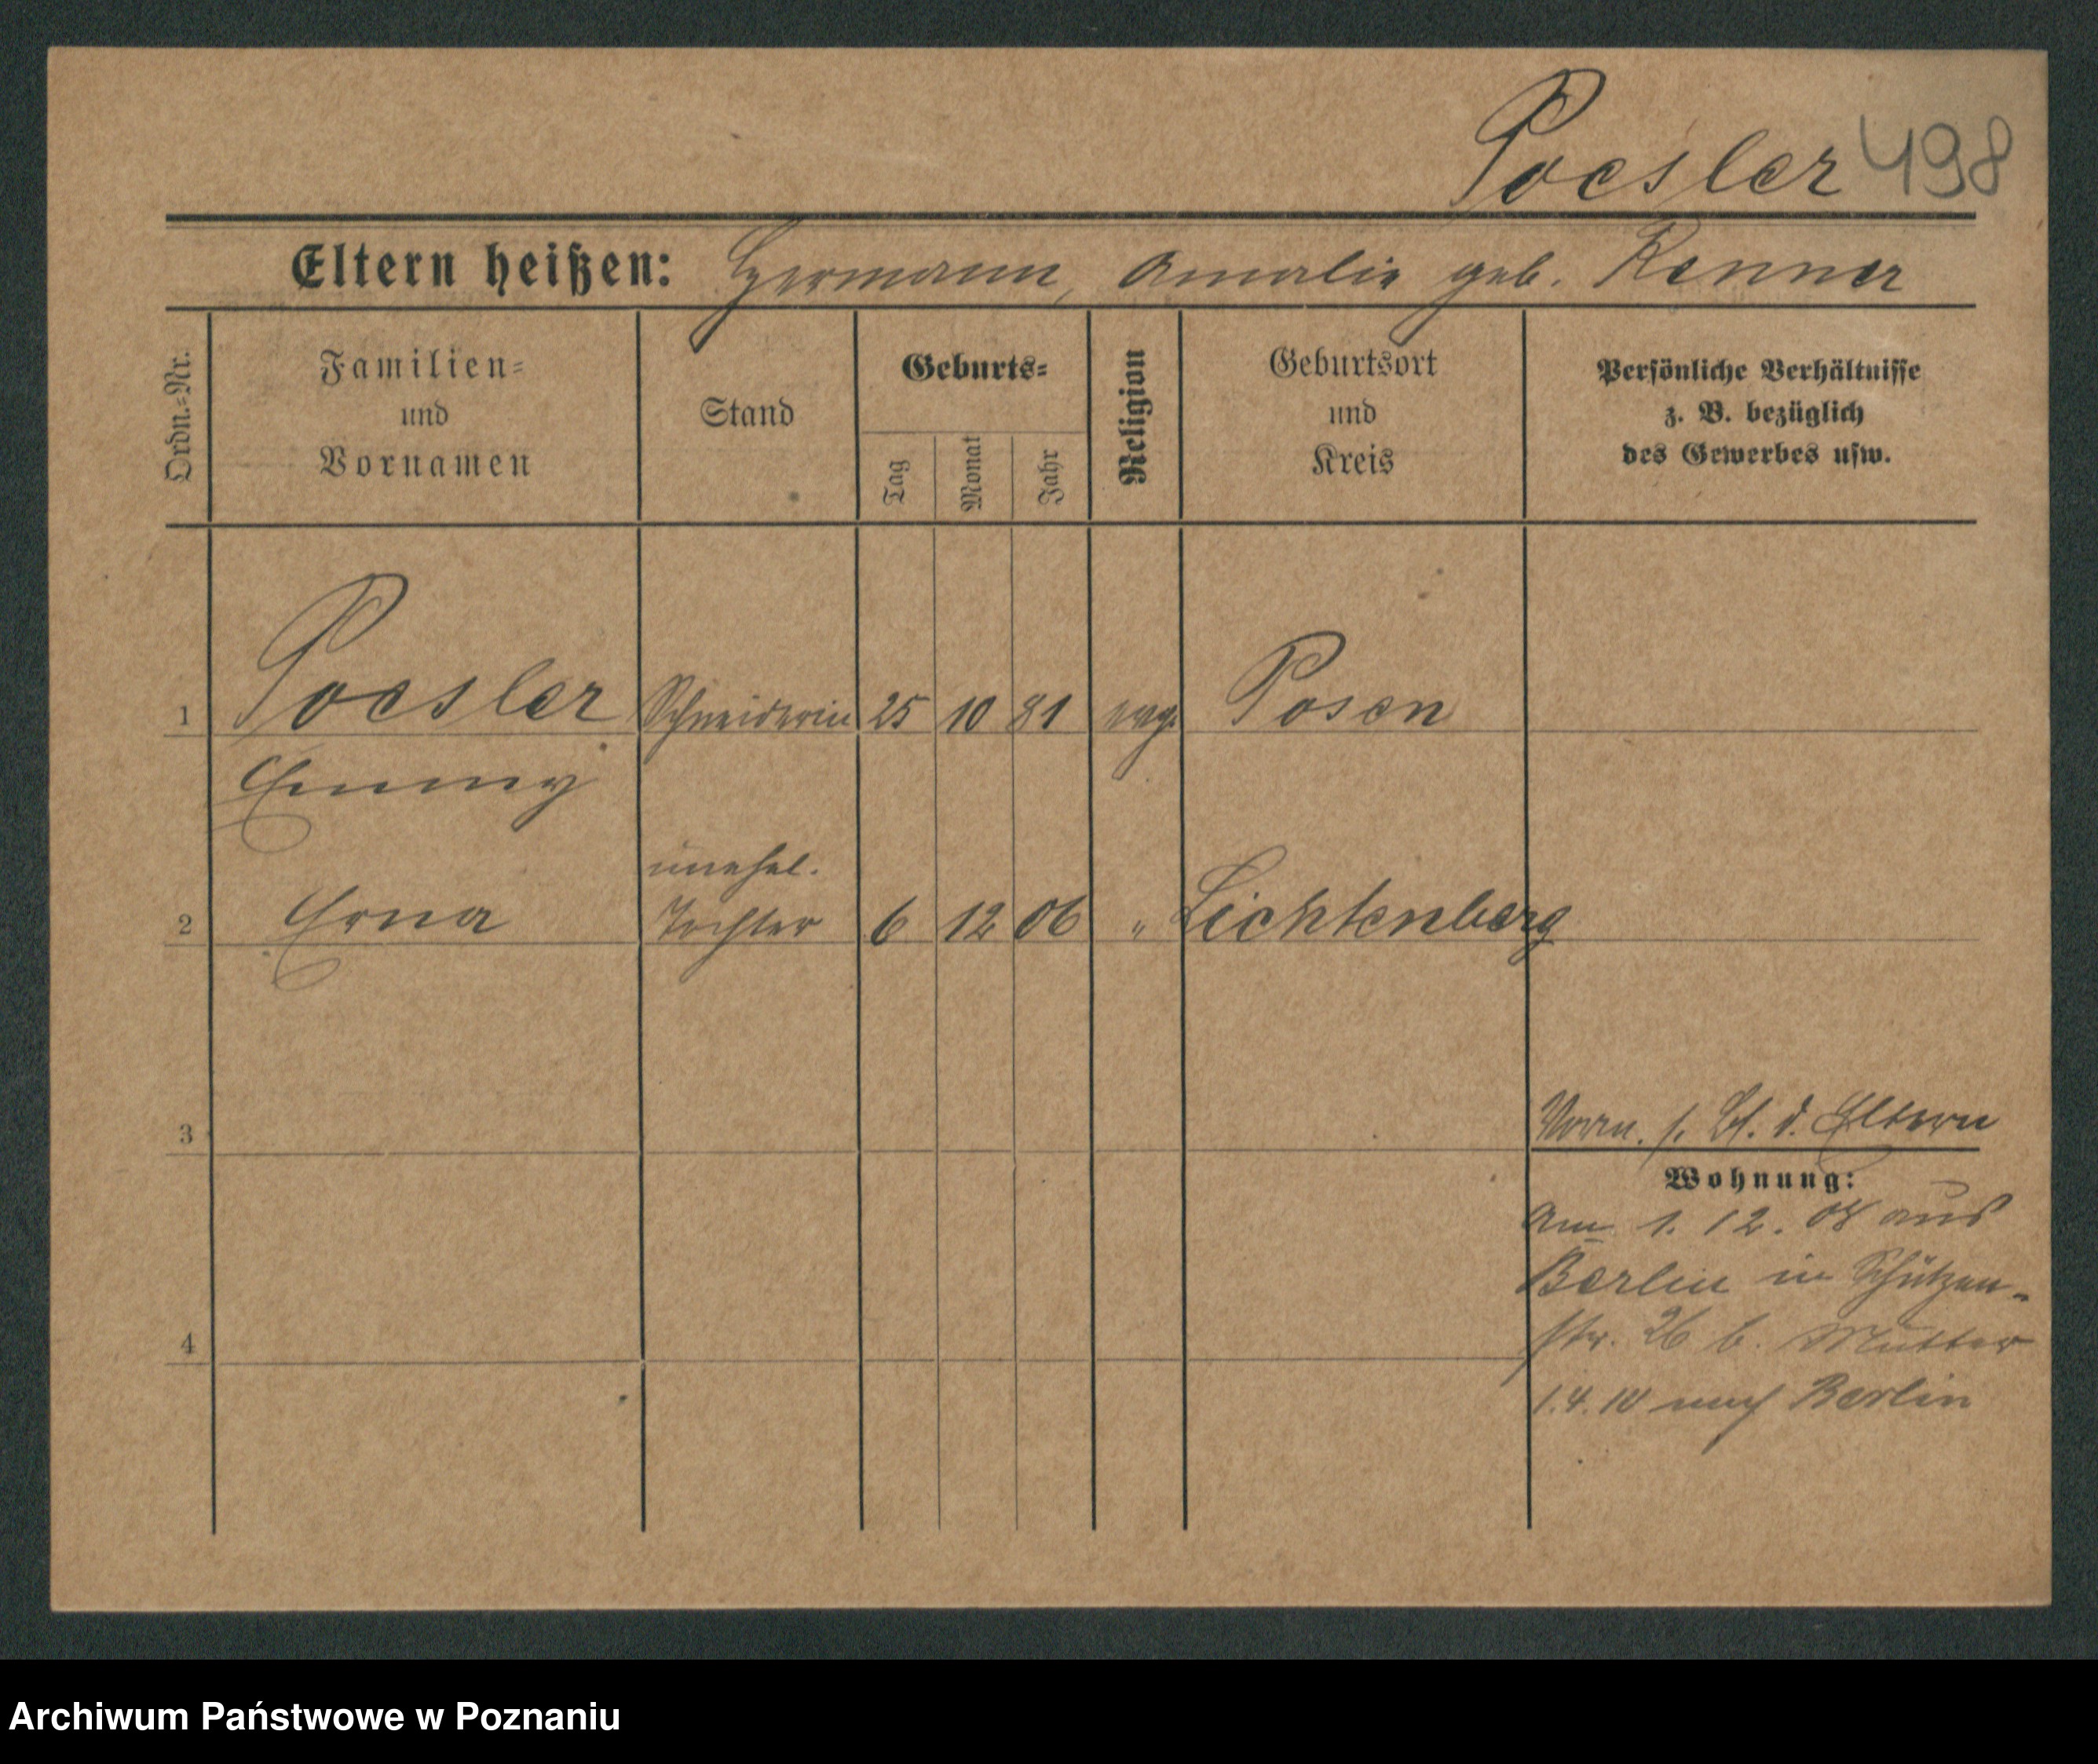 Poesler 498
Eltern heißen: Hermann, Amalie geb. Renner
Ordn.-Nr.
Familien-
und
Vornamen
Stand
Geburts-
Tag
Monat
Jahr
Religion
Geburtsort
und
Kreis
Persönliche Verhältnisse
z. B. bezüglich
des Gewerbes usw.
1 Poesler Schneiderin 25 10 81 evg. Posen
Emmy
unehel.
2 Erna Tochter 6 12 06 " Lichtenberg
3
Vorm. s. Bl. d. Eltern
Wohnung:
Am 1. 12. 08 aus
Berlin in Schützen-
4
str. 26 b. Mutter
1.4.10 nach Berlin
Archiwum Państwowe w Poznaniu